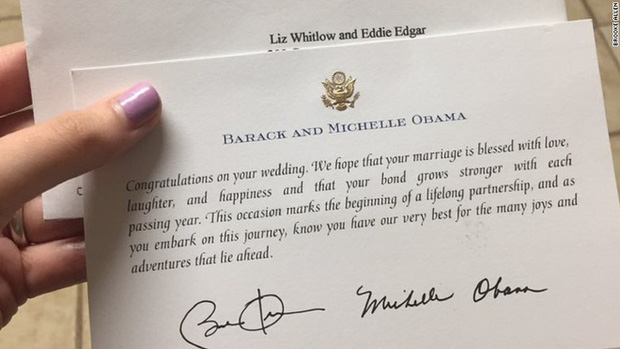 Liz Whitlow and Eddie Edgar
BARACK AND MICHELLE OBAMA
Congratulations on your wedding. We hope that your marriage is blessed with love,
laughter, and happiness and that your bond grows stronger with each
passing year. This occasion marks the beginning of a lifelong partnership, and as
you embark on this journey, know you have our very best for the many joys and
adventures that lie ahead.
Michelle Obama
BROOKE ALLEN
CNN